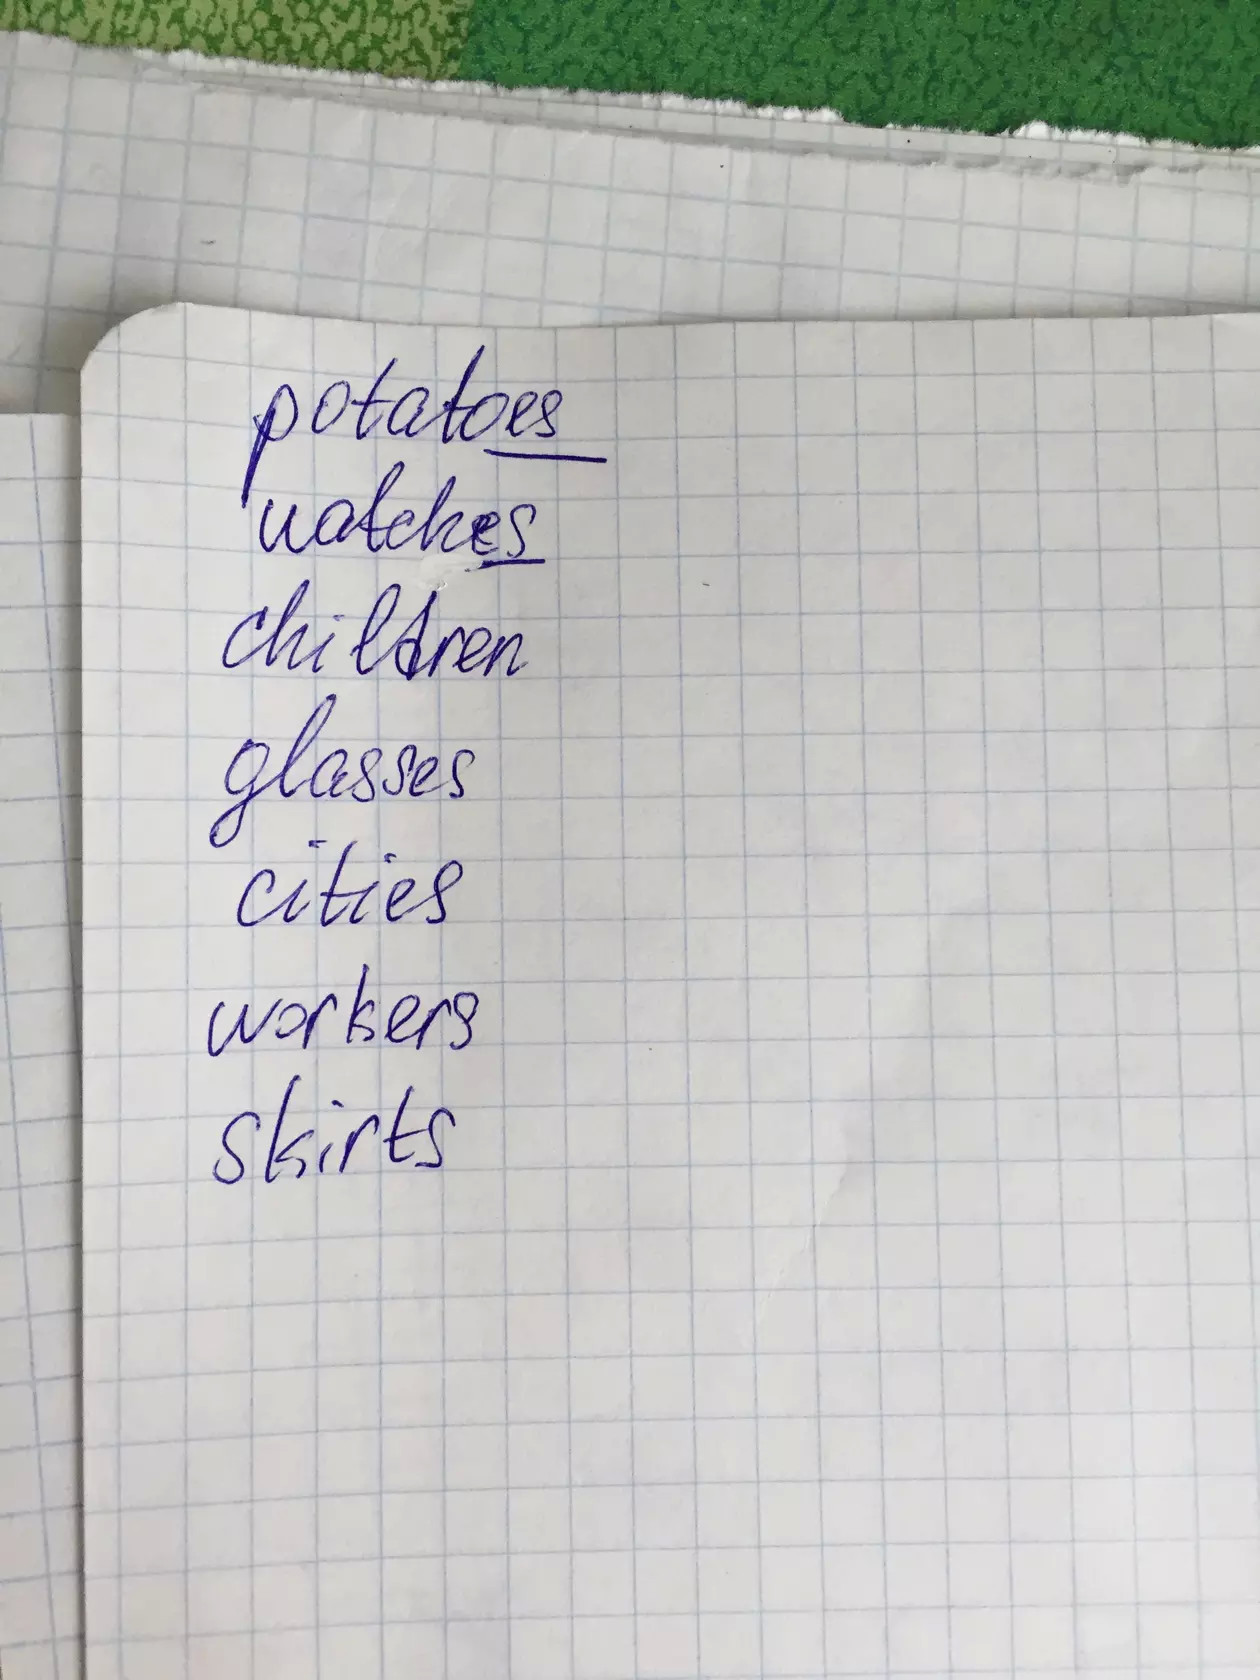 potatoes
watches
children
glasses
cities
workers
skirts